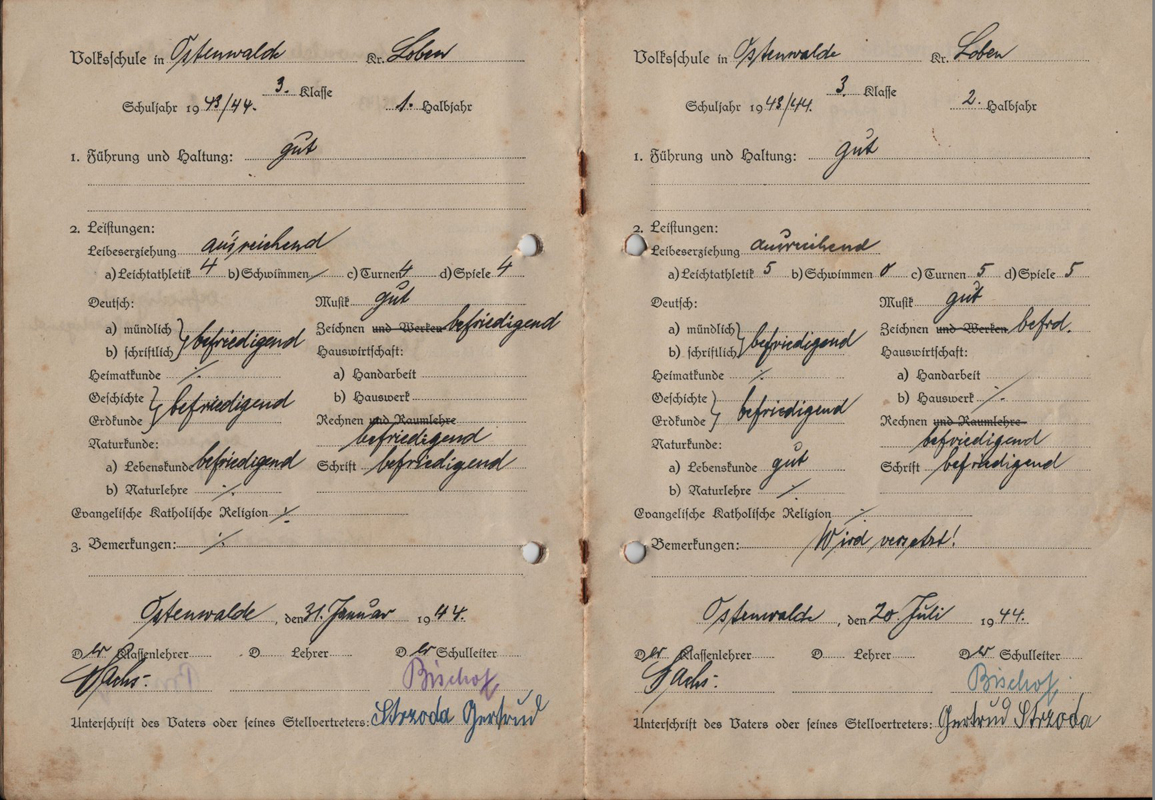 Volksschule in Ostenwalde Kr. Loben
3. Klasse
Schuljahr 1943/44. 1. Halbjahr
1. Führung und Haltung: gut
2. Leistungen:
Leibeserziehung ausreichend
a) Leichtathletik 4 b) Schwimmen / c) Turnen 4 d) Spiele 4
Deutsch: Musik gut
a) mündlich } befriedigend Zeichnen und Werken befriedigend
b) schriftlich Hauswirtschaft:
Heimatkunde ·/. a) Handarbeit
Geschichte } befriedigend b) Hauswerk
Erdkunde Rechnen und Raumlehre
Naturkunde: befriedigend
a) Lebenskunde befriedigend Schrift befriedigend
b) Naturlehre ·/.
Evangelische Katholische Religion ·/.
3. Bemerkungen: ·/.
Ostenwalde, den 31. Januar 1944.
Der Klassenlehrer D Lehrer Der Schulleiter
Sachs. Bischof,
Unterschrift des Vaters oder seines Stellvertreters: Strzoda Gertrud
Volksschule in Ostenwalde Kr. Loben
3. Klasse
Schuljahr 1943/44. 2. Halbjahr
1. Führung und Haltung: gut
2. Leistungen:
Leibeserziehung ausreichend
a) Leichtathletik 5 b) Schwimmen 0 c) Turnen 5 d) Spiele 5
Deutsch: Musik gut
a) mündlich } befriedigend Zeichnen und Werken befrd.
b) schriftlich Hauswirtschaft:
Heimatkunde ·/. a) Handarbeit
Geschichte } befriedigend b) Hauswerk ·/.
Erdkunde Rechnen und Raumlehre
Naturkunde: befriedigend
a) Lebenskunde gut Schrift befriedigend
b) Naturlehre ·/.
Evangelische Katholische Religion ·/.
Bemerkungen: Wird versetzt!
Ostenwalde, den 20. Juli 1944.
Der Klassenlehrer D Lehrer Der Schulleiter
Sachs. Bischof,
Unterschrift des Vaters oder seines Stellvertreters: Gertrud Strzoda